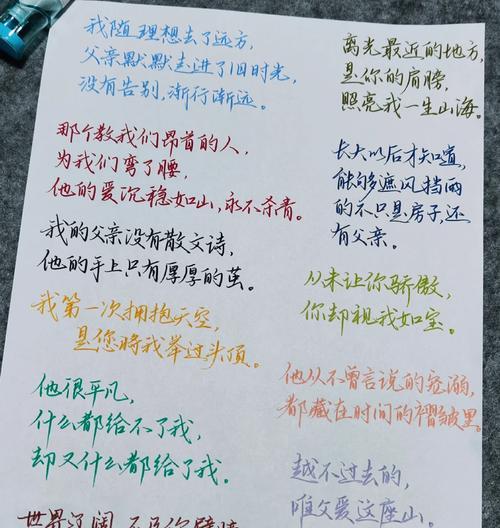 我随理想去了远方，
父亲默默走进了旧时光，
没有告别，渐行渐远。
那个教我们昂首的人，
为我们弯了腰，
他的爱沉稳如山，永不杀青。
我的父亲没有散文诗，
他的手上只有厚厚的茧。
我第一次拥抱天空，
是您将我举过头顶。
他很平凡，
什么都给不了我，
却又什么都给了我。
世界辽阔
离光最近的地方，
是你的肩膀，
照亮我一生山海。
长大以后才知道，
能够遮风挡雨
的不只是房子，还
有父亲。
从未让你骄傲，
你却视我如宝。
他从不曾言说的宠溺，
都藏在时间的褶皱里。
越不过去的，
唯父爱这座山。